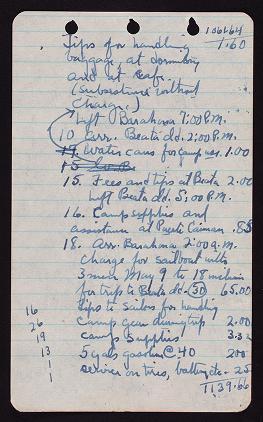 106464
Tips for handling 1.60
baggage, at dormitory
and at cafe.
(Subsistence without
charge.)
Left Barahona 7:00 P.M.
10 Arr. Beata Id. 2:00 P.M.
14. Water cans for camp use. 1.00
15
15. Fees and tips at Beata 2.00
Left Beata Id. 5:00 P.M.
16. Camp supplies and
assistance at Puerto Caiman .85
18. Arr. Barahona 2:00 a.m.
Charge for sailboat with
3 men May 9 to 18 inclusive
for trip to Beata Id. (30) 65.00
16 Tips to Sailors for handling
26 camp gear during trip 2.00
19 Camp Supplies 3.32
13 5 gals gasoline @ 40 2.00
1 Service on tires, battery etc. .25
1 1139.66